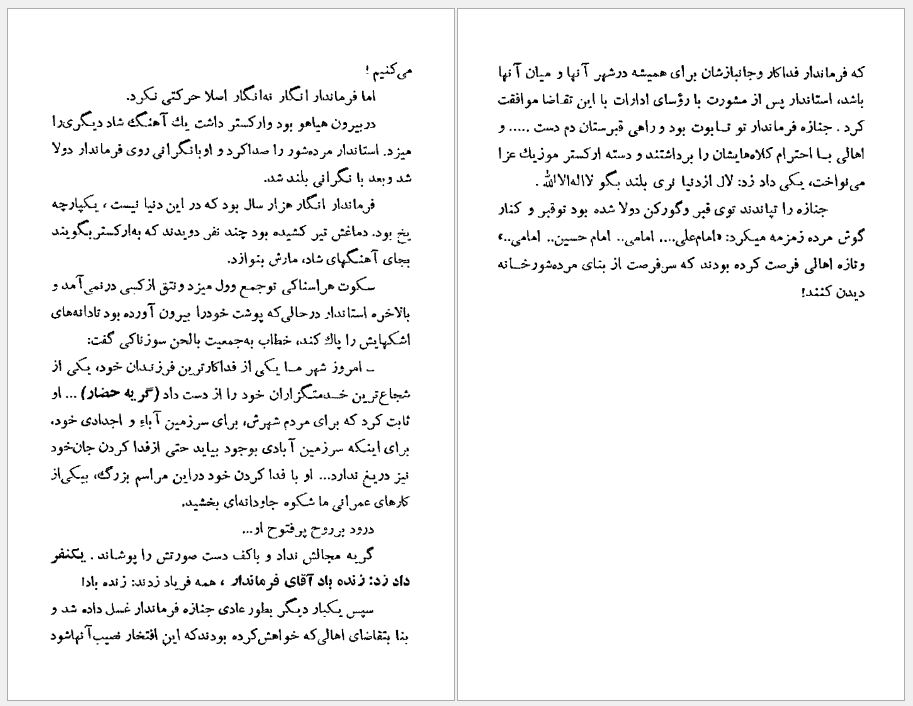 می‌کنیم !
اما فرماندار انگار نه‌انگار اصلا حرکتی نکرد.
دربیرون هیاهو بود وارکستر داشت یك آهنگ شاد دیگری‌را
میزد. استاندار مرده‌شور را صداکرد و اوبانگرانی روی فرماندار دولا
شد وبعد با نگرانی بلند شد.
فرماندار انگار هزار سال بود که در این دنیا نیست ، یکپارچه
یخ بود. دماغش تیر کشیده بود چند نفر دویدند که به‌ارکستربگویند
بجای آهنگهای شاد، مارش بنوازد.
سکوت هراسناکی توجمع وول میزد ونتق ازکسی درنمی‌آمد و
بالاخره استاندار درحالی‌که پوشت خودرا بیرون آورده بود تادانه‌های
اشکهایش را پاك کند، خطاب به‌جمعیت بالحن سوزناکی گفت:
ـ امروز شهر مـا یکی از فداکارترین فرزندان خود، یکی از
شجاع‌ترین خـدمتگزاران خود را از دست داد (گریه حضار) ... او
ثابت کرد که برای مردم شهرش، برای سرزمین آباء و اجدادی خود،
برای اینکه سرزمین آبادی بوجود بیاید حتی ازفدا کردن جان‌خود
نیز دریغ ندارد... او با فدا کردن خود دراین مراسم بزرگ، بیکی‌از
کارهای عمرانی ما شکوه جاودانه‌ای بخشید.
درود برروح پرفتوح او...
گریه مجالش نداد و باکف دست صورتش را پوشاند . یکنفر
داد زد: زنده باد آقای فرماندار ، همه فریاد زدند: زنده باد!
سپس یکبار دیگر بطور عادی جنازه فرماندار غسل داده شد و
بنا بتقاضای اهالی‌که خواهش‌کرده بودندکه این افتخار نصیب‌آنهاشود
که فرماندار فداکار وجانبازشان برای همیشه درشهر آنها و میان آنها
باشد، استاندار پس از مشورت با رؤسای ادارات با این تقاضا موافقت
کرد . جنازه فرماندار تو تـابوت بود و راهی قبرستان دم دست ..... و
اهالی بـا احترام کلاه‌هایشان را برداشتند و دسته ارکستر موزیك عزا
می‌نواخت، یکی داد زد: لال ازدنیا نری بلند بگو لااله‌الاالله .
جنازه را تپاندند توی قبر وگورکن دولا شده بود توقبر و کنار
گوش مرده زمزمه میکرد: «امام‌علی.... امامی.. امام حسین.. امامی..»
وتازه اهالی فرصت کرده بودند که سرفرصت از بنای مرده‌شورخـانه
دیدن کنند!